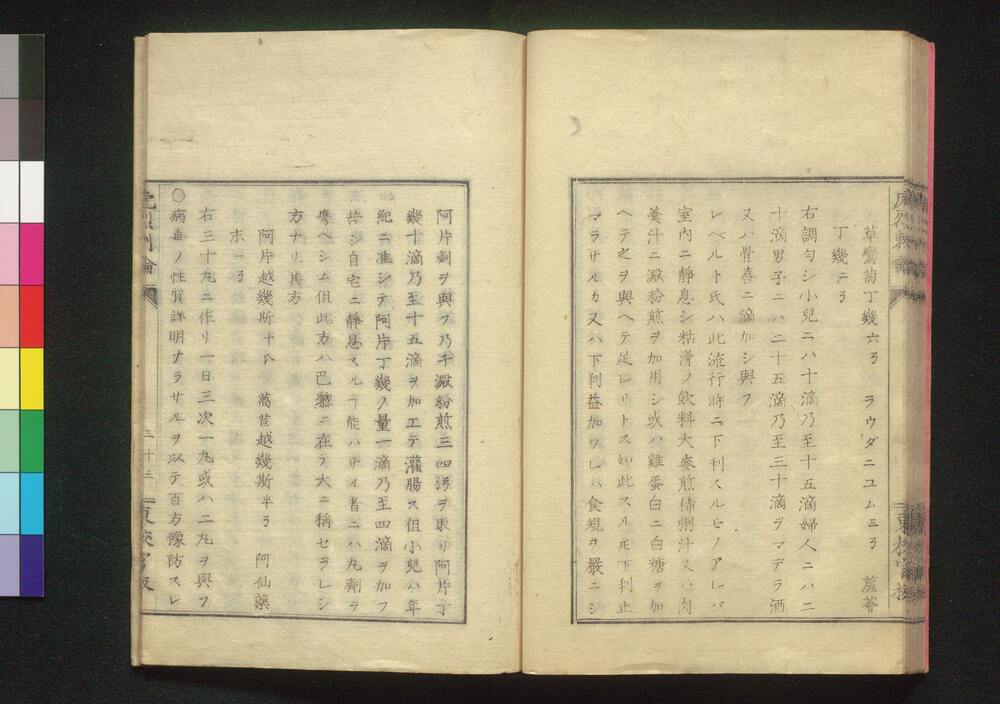 草鸞菊丁幾六ゟ ラウダニユム三ゟ 蘆薈
丁幾二ゟ
右調匀シ小兒ニハ十滴乃至十五滴婦人ニハ二
十滴男子ニハ二十五滴乃至三十滴ヲマデラ酒
又ハ骨喜ニ滴加シ與フ
レベルト氏ハ此流行時ニ下利スルヒノアレバ
室内ニ靜息シ粘滑ノ飲料大麥煎稀粥汁又ハ肉
羹汁ニ澱粉煎ヲ加用シ或ハ雞蛋白ニ白糖ヲ加
ヘテ之ヲ與ヘテ足レリトス如此スルモ下利止
マラサルカ又ハ下利益加ワレハ食規ヲ嚴ニシ
阿片劑ヲ與フ乃チ澱粉煎三四ヲ取リ阿片丁
幾十滴乃至十五滴ヲ加エテ灌腸ス但小兒ハ年
紀ニ准シテ阿片丁幾ノ量一滴乃至四滴ヲ加フ
若シ自宅ニ靜息スルヿ能ハサル者ニハ丸劑ヲ
與ヘシム但此方ハ巴黎ニ在テ大ニ稱セラレシ
方ナリ其方
阿片越幾斯十 萵苣越幾斯半ゟ 阿仙藥
末一ゟ
右三十丸ニ作リ一日三次一丸或ハ二丸ヲ與フ
○病毒ノ性質詳明ナラサルヲ以テ百方豫防スレ